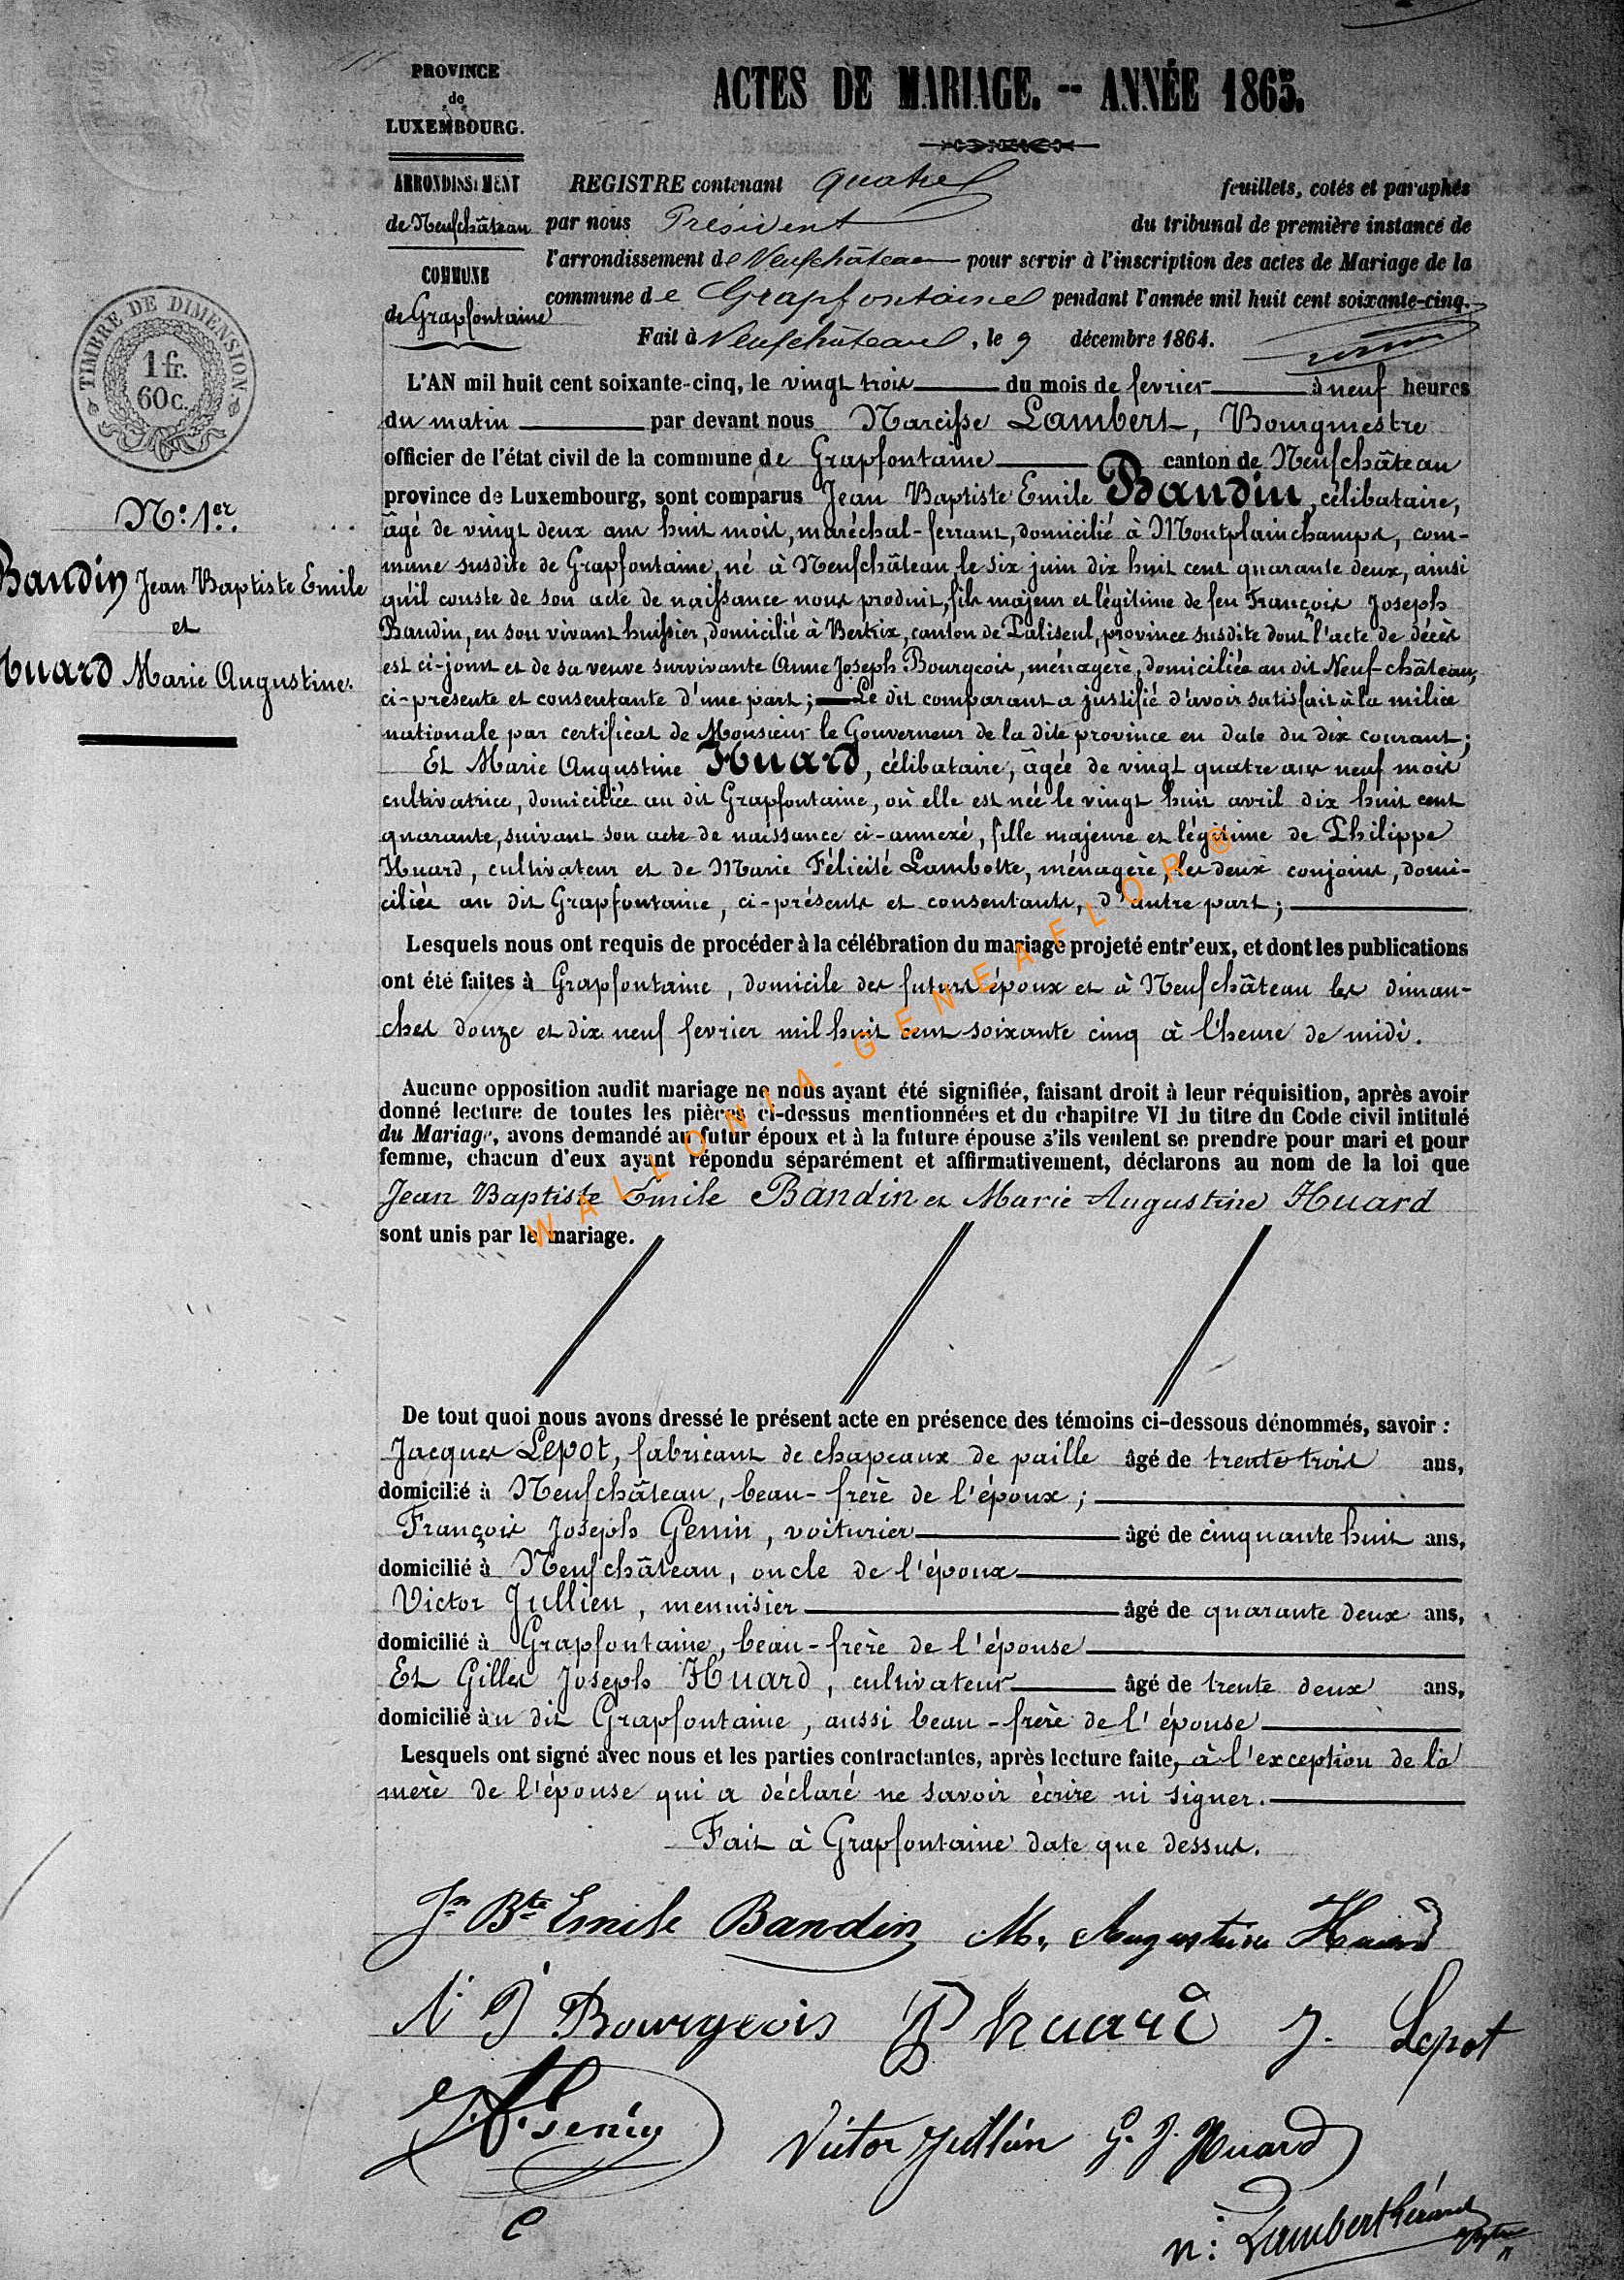 PROVINCE
de
LUXEMBOURG.
ARRONDISSEMENT
de Neufchâteau
COMMUNE
de Grapfontaine
ACTES DE MARIAGE. -- ANNÉE 1865.
REGISTRE contenant quatre feuillets, cotés et paraphés
par nous Président du tribunal de première instance de
l'arrondissement de Neufchâteau pour servir à l'inscription des actes de Mariage de la
commune de Grapfontaine pendant l'année mil huit cent soixante-cinq.
Fait à Neufchâteau, le 9 décembre 1864.
TIMBRE DE DIMENSION.
1 fr.
60 c.
N° 1er.
Baudin Jean Baptiste Emile
et
Huard Marie Augustine.
L'AN mil huit cent soixante-cinq, le vingt trois du mois de fevrier à neuf heures
du matin par devant nous Narcisse Lambert, Bourgmestre
officier de l'état civil de la commune de Grapfontaine canton de Neufchâteau
province de Luxembourg, sont comparus Jean Baptiste Emile Baudin, célibataire,
âgé de vingt deux ans huit mois, maréchal-ferrant, domicilié à Montplainchamps, com-
mune susdite de Grapfontaine, né à Neufchâteau, le six juin dix huit cent quarante deux, ainsi
qu'il conste de son acte de naissance nous produit, fils majeur et légitime de feu François Joseph
Baudin, en son vivant huissier, domicilié à Bertrix, canton de Paliseul, province susdite dont l'acte de décès
est ci-joint et de sa veuve survivante Anne Joseph Bourgeois, ménagère, domiciliée au dit Neuf-château,
ci-présente et consentante d'une part; Le dit comparant a justifié d'avoir satisfait à la milice
nationale par certificat de Monsieur le Gouverneur de la dite province en date du dix courant;
Et Marie Augustine Huard, célibataire, âgée de vingt quatre ans neuf mois
cultivatrice, domiciliée au dit Grapfontaine, où elle est née le vingt huit avril dix huit cent
quarante, suivant son acte de naissance ci-annexé, fille majeure et légitime de Philippe
Huard, cultivateur et de Marie Félicité Lambotte, ménagère, les deux conjoins, domi-
ciliés au dit Grapfontaine, ci-présents et consentants, d'autre part;
Lesquels nous ont requis de procéder à la célébration du mariage projeté entr'eux, et dont les publications
ont été faites à Grapfontaine, domicile des futurs époux et à Neufchâteau les diman-
ches douze et dix neuf fevrier mil huit cent soixante cinq à l'heure de midi.
Aucune opposition audit mariage ne nous ayant été signifiée, faisant droit à leur réquisition, après avoir
donné lecture de toutes les pièces ci-dessus mentionnées et du chapitre VI du titre du Code civil intitulé
du Mariage, avons demandé au futur époux et à la future épouse s'ils veulent se prendre pour mari et pour
femme, chacun d'eux ayant répondu séparément et affirmativement, déclarons au nom de la loi que
Jean Baptiste Emile Baudin et Marie Augustine Huard
sont unis par le mariage.
WALLONIA-GENEAFLOR®
De tout quoi nous avons dressé le présent acte en présence des témoins ci-dessous dénommés, savoir :
Jacques Lepot, fabricant de chapeaux de paille âgé de trente trois ans,
domicilié à Neufchâteau, beau-frère de l'époux;
François Joseph Genin, voiturier âgé de cinquante huit ans,
domicilié à Neufchâteau, oncle de l'époux
Victor Jullien, menuisier âgé de quarante deux ans,
domicilié à Grapfontaine, beau-frère de l'épouse
Et Gilles Joseph Huard, cultivateur âgé de trente deux ans,
domicilié au dit Grapfontaine, aussi beau-frère de l'épouse
Lesquels ont signé avec nous et les parties contractantes, après lecture faite, à l'exception de la
mère de l'épouse qui a déclaré ne savoir écrire ni signer.
Fait à Grapfontaine date que dessus.
Jn Bte Emile Baudin M. Augustine Huard
Bourgeois P huard J. Lepot
Genin Victor Jullien G. J. Huard
N: Lambert